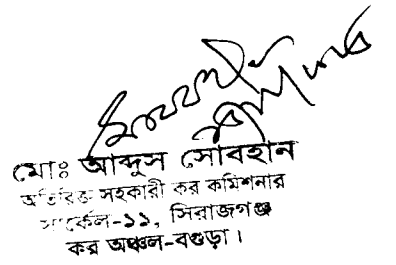 মোঃ আব্দুস সোবহান
অতিরিক্ত সহকারী কর কমিশনার
সার্কেল-১১, সিরাজগঞ্জ
কর অঞ্চল-বগুড়া।